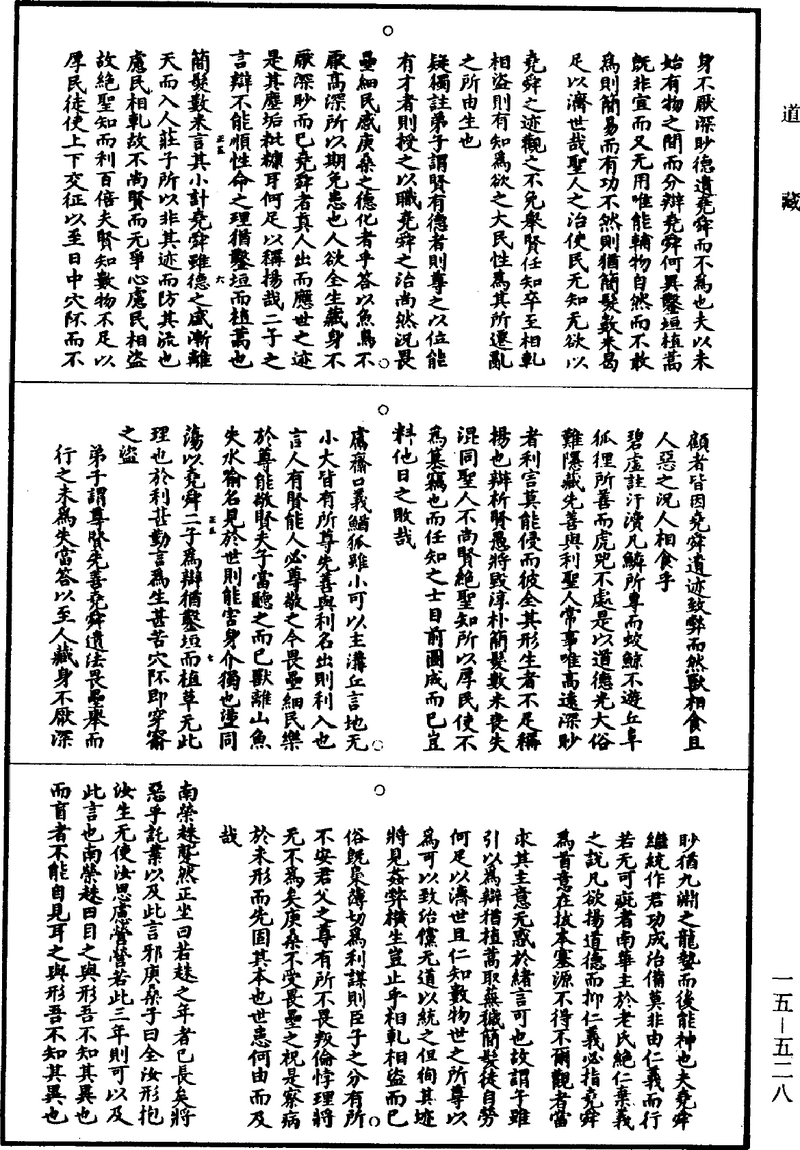 道藏
身不厭深眇德遺堯舜而不為也夫以未
始有物之間而分辯堯舜何異鑿垣植蒿
既非宜而又无用唯能輔物自然而不敢
為則簡易而有功不然則猶簡髮數米曷
足以濟世哉聖人之治使民无知无欲以
堯舜之迹觀之不免舉賢任知卒至相軋
相盜則有知為欲之大民性為其所遷亂
之所由生也
疑獨註弟子謂賢有德者則尊之以位能
有才者則授之以職堯舜之治尚然況畏
壘細民感庚桑之德化者乎答以魚鳥不
厭高深所以期免患也人欲全生藏身不
厭深眇而已堯舜者真人出而應世之迹
是其塵垢粃糠耳何足以稱揚哉二子之
言辯不能順性命之理猶鑿垣而植蒿也
簡髮數米言其小計堯舜雖德之盛漸離
天而入人莊子所以非其迹而防其流也
慮民相軋故不尚賢而无爭心慮民相盜
故絕聖知而利百倍夫賢知數物不足以
厚民徒使上下交征以至日中穴阫而不
顧者皆因堯舜遺迹致弊而然獸相食且
人惡之況人相食乎
碧虛註汙瀆凡鱗所專而蛟鯨不遊丘阜
狐狸所善而虎兕不處是以道德光大俗
難隱藏先善與利聖人常事唯高遠深眇
者利害莫能侵而彼全其形生者不足稱
揚也辯析賢愚將毀淳朴簡髮數米喪失
混同聖人不尚賢絕聖知所以厚民使不
為篡竊也而任知之士目前圖成而已豈
料他日之敗哉
鬳齋口義鰌狐雖小可以主溝丘言地无
小大皆有所尊先善與利名出則利入也
言人有賢能人必尊敬之今畏壘細民樂
於尊能敬賢夫子當聽之而已獸離山魚
失水喻名見於世則能害身介獨也盪同
蕩以堯舜二子為辯猶鑿垣而植草无此
理也於利甚勤言為生甚苦穴阫即穿窬
之盜
弟子謂尊賢先善堯舜遺法畏壘舉而
行之未為失當答以至人藏身不厭深
眇猶九淵之龍蟄而後能神也夫堯舜
繼統作君功成治備莫非由仁義而行
若无可疵者南華主於老氏絕仁棄義
之說凡欲揚道德而抑仁義必指堯舜
為首意在拔本塞源不得不爾觀者當
求其主意无惑於緒言可也故謂子雖
引以為辯猶植蒿取蕪穢簡髮徒自勞
何足以濟世且仁知數物世之所尊以
為可以致治儻无道以統之但徇其迹
將見姦弊橫生豈止乎相軋相盜而已
俗既梟薄切為利謀則臣子之分有所
不安君父之尊有所不畏叛倫悖理將
无不為矣庚桑不受畏壘之祝是察病
於未形而先固其本也世患何由而及
哉
南榮趎蹵然正坐曰若趎之年者已長矣將
惡乎託業以及此言邪庚桑子曰全汝形抱
汝生无使汝思慮營營若此三年則可以及
此言也南榮趎曰目之與形吾不知其異也
而盲者不能自見耳之與形吾不知其異也
一五—五二八